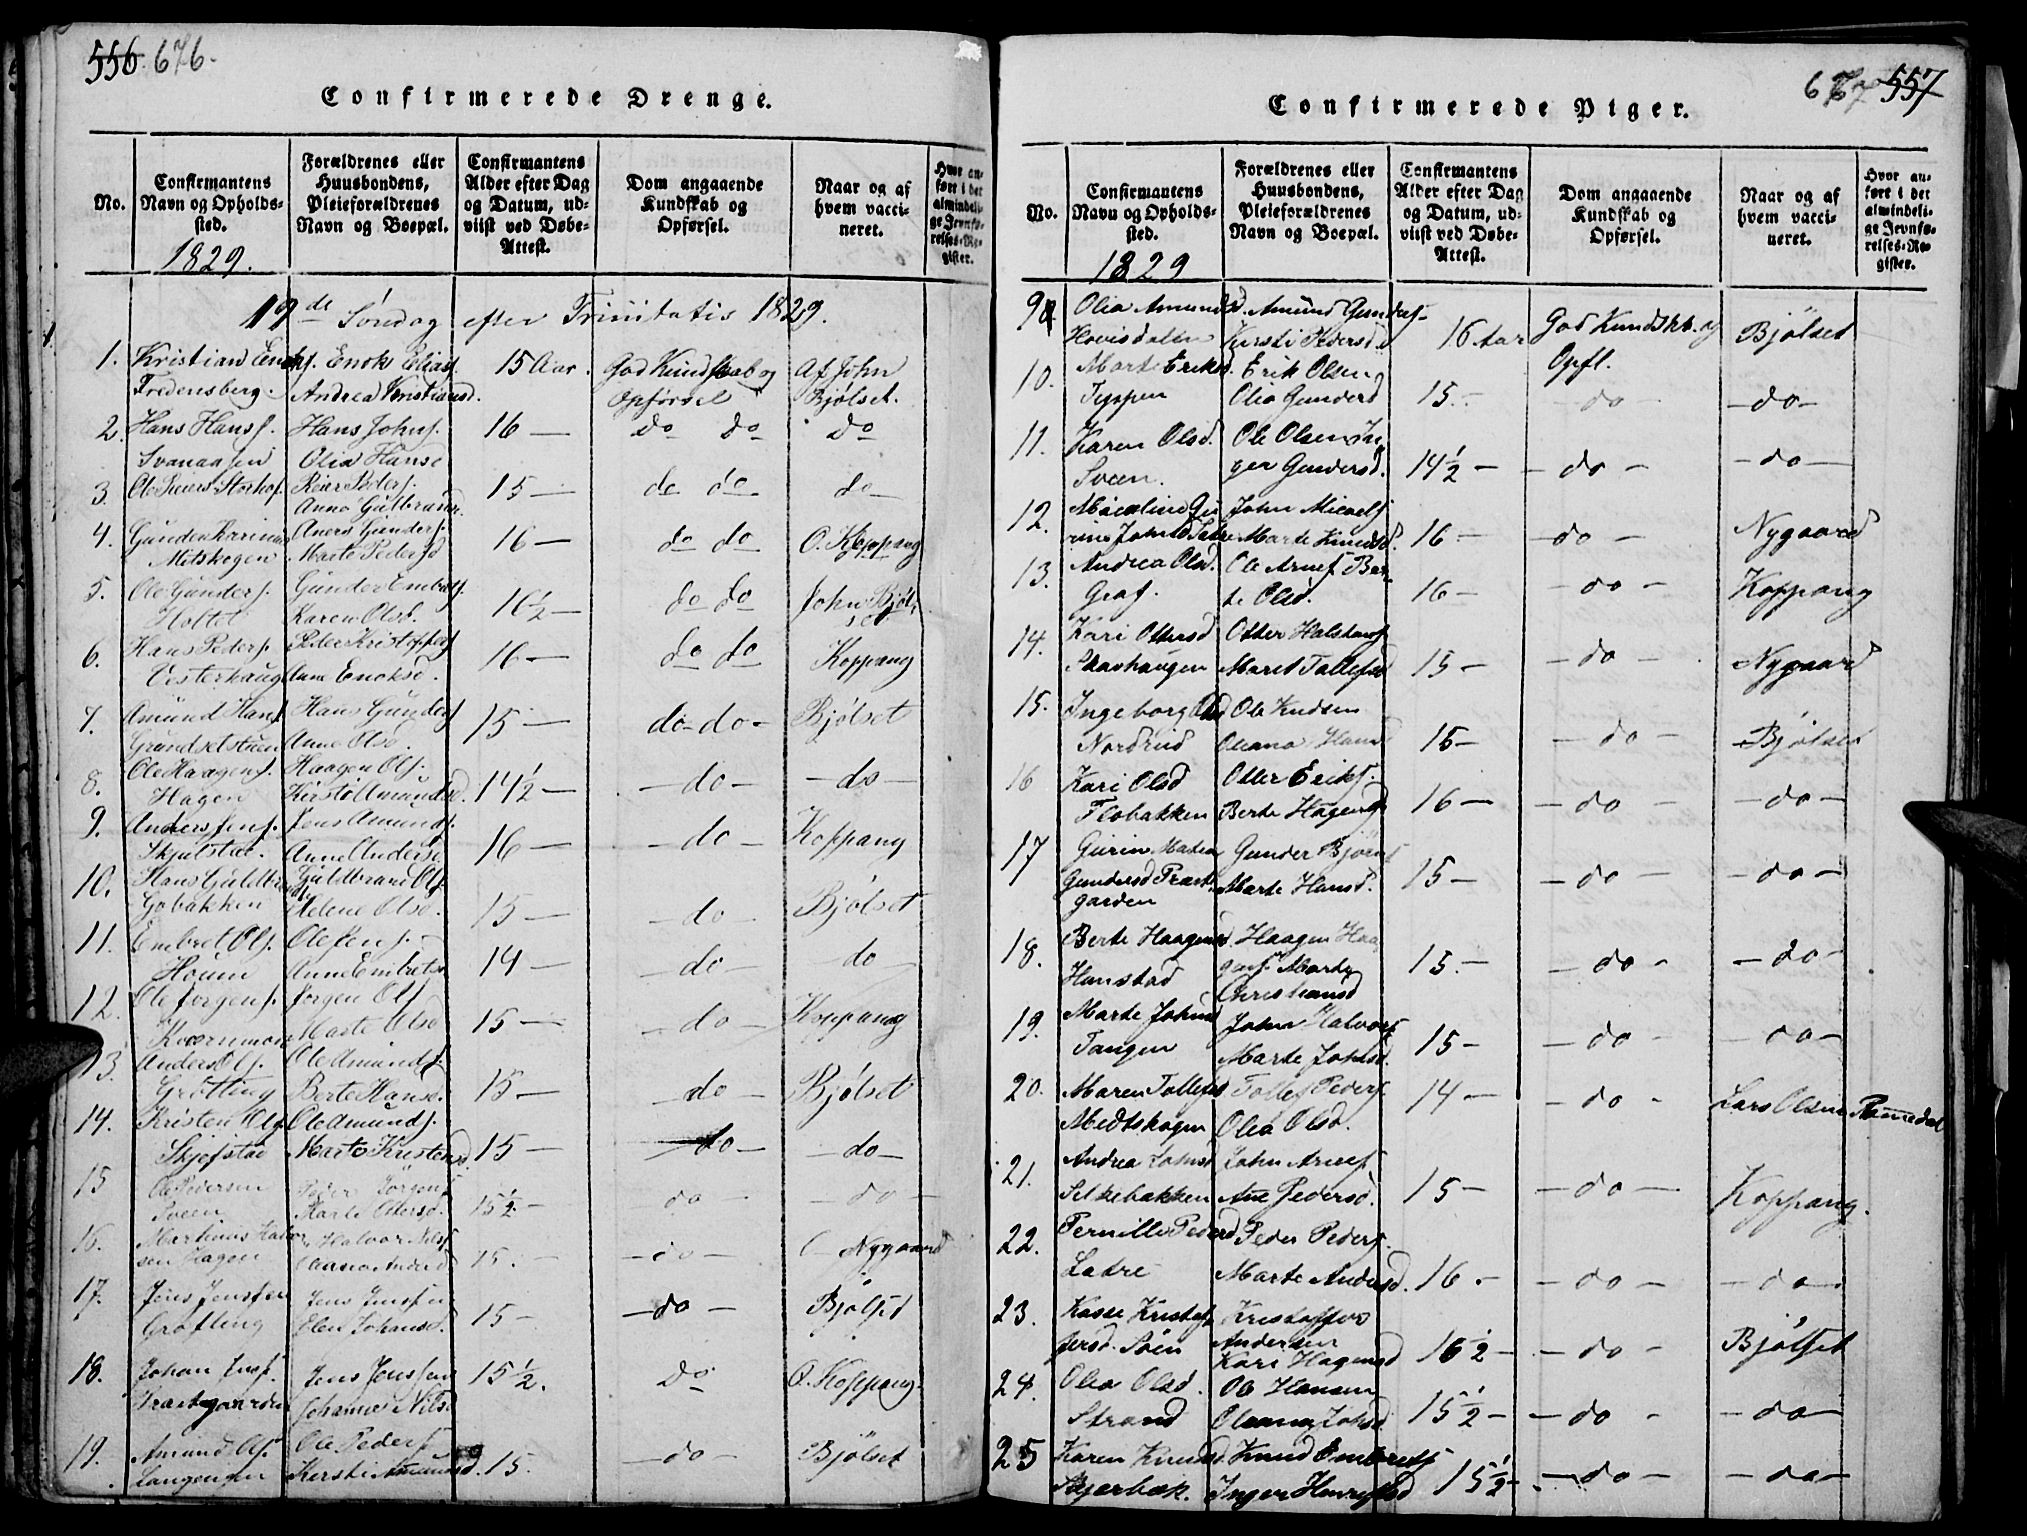 556 676.
Confirmerede Drenge.
No.
Confirmantens Navn og Opholdssted.
Forældrenes eller Huusbondens, Pleieforældrenes Navn og Boepæl.
Confirmantens Alder efter Dag og Datum, udviist ved Døbe-Attest.
Dom angaaende Kundskab og Opførsel.
Naar og af hvem vaccineret.
Hvor anført i det almindelige Jevnførelses-Register.
1829.
19de Søndag efter Trinitatis 1829.
1. Kristian Enokf. Enok Eliasf. 15 Aar. God Kundskab og Af John
Fredensberg. Andrea Kristiansd. Opførsel Bjølset.
2. Hans Hansf. Hans Johnf. 16 — do do do
Svanaaen Olia Hansd
3. Ole Reiers Storhof. Reier Pederf. 15 — do do do
Anne Gulbrandsd.
4. Gunder Anders Gunderf. 16 — do do O. Koppang
Mitskogen Marte Pedersd
5. Ole Gunderf. Gunder Embretf. 16½ — do do John Bjøl-
Holtet Karen Olsd. set
6. Hans Pederf. Peder Kristoffersf 16 — do do Koppang
Vesterhaug Anne Enoksd.
7. Amund Hansf Hans Gunderf 15 — do do — Bjølset
Grundsetstuen Anne Olsd.
8. Ole Haagenf. Haagen Olsf. 14½ — do — do —
Hagen Kirsti Amundsd.
9. Anders Jensf. Jens Amundf. 16 — do — Koppang
Skjulstad. Anne Andersd
10. Hans Guldbrandsf Guldbrand Olsf. 15 — do — Bjølset
Gobakken Helene Olsd.
11. Embret Olsf. Ole Jensf. 14 — do — do
Hoium Anne Embretsd.
12. Ole Jørgenf. Jørgen Olsf 15 — do — Koppang
Kværnmoen Marte Olsd
13. Anders Olsf. Ole Amundsf 15 — do — Bjølset
Grøtting Berte Hansd.
14. Kristen Olsf Ole Amundsf. 15 — do — do —
Skjefstad Marte Kristensd.
15 Ole Pedersen Peder Jørgensf 15½ — do — do —
Sveen Marte Olersd.
16. Martinus Halvor Halvor Nilsf 15. — do — Nygaard
sen Hagen Andersd
17. Jens Jensen Jens Jensen 15 — do — Bjølset
Grøtting Elen Johansd.
18. Johan Jensf. Jens Jensen 15½. do O. Koppang.
Præstgaarden Johanne Nilsd
19. Amund Olsf. Ole Pedersf 15. — do — Bjølset
Langengen Kersti Amundsd.
677 557
Confirmerede Piger.
No.
Confirmantens Navn og Opholdssted.
Forældrenes eller Huusbondens, Pleieforældrenes Navn og Boepæl.
Confirmantens Alder efter Dag og Datum, udviist ved Døbe-Attest.
Dom angaaende Kundskab og Opførsel.
Naar og af hvem vaccineret.
Hvor anført i det almindelige Jevnførelses-Register.
1829
9 Olia Amundsd. Amund Gundersf. 16 Aar God Kundskb. og Bjølset
Hovisdalen Kirsti Pedersd Opfl.
10. Marte Eriksd. Erik Olsen 15. — do — do —
Typpen Olia Gundersd
11. Karen Olsd. Ole Olsen In- 14½ — do — do —
Sveen. ger Gundersd.
12. Micaeline Gu- John Micaelsf 16 — do — Nygaard
rine Johnsd Marte Knudsd.
13. Andrea Olsd. Ole Arnesf. Ber- 16 — do — Koppang
Graf. te Olsd.
14. Kari Ottersd Otter Halstensf 15 — do — Nygaard
Skavhaugen Maret Tollefsd
15. Ingeborg Olsd Ole Knudsen 15 — do — Bjølset
Nordrud Oleana Hansd
16 Kari Olsd Otter Eriksf. 16 — do — do —
Flobakken Berte Hagensd
17 Gurine Matea Gunder Bjørnsf 15 — do — do —
Gundersd Præst- Marte Hansd.
garden
18. Berte Haagensd. Haagen Haa- 15. — do — do —
Hanstad gensf. Marte
Christiansd
19. Marte Johnsd John Halvorsf 15 — do — do —
Tangen Marte Johnsd.
20. Maren Tollefsd Tollef Pedersf. 14 — do — Lars Olsen Rømmedal
Medtskogen Olea Olsd.
21. Andrea Johnsd John Arnesf. 15 — do — Koppang.
Silkebakken Ane Pedersd.
22. Pernille Pedersd Peder Pedersf. 16. — do — do —
Latre Marte Andersd.
23. Kasse Kristof- Kristoffer 16½ — do — Bjølset
fersd. Støen Andersen
Kari Hagensd
24. Olia Olsd. Ole Hansen 15½ — do — do —
Strand Oleana Johnsd
25 Karen Knudsd. Knud Embretsf 15½ — do — do —
Skjærbæk. Inger Henriksd